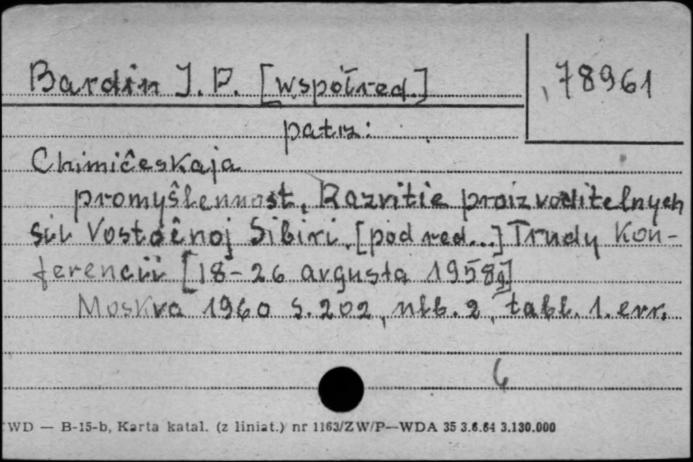 Bardin I. P. [współred.]
78961
patrz:
Chimičeskaja
promyšlennost, Razvitie proizvoditelnych
sil Vostočnoj Sibiri. [pod red...] Trudy Kon-
ferencii [18-26 avgusta 1958g]
Moskva 1960 s. 202, nlb. 2, tabl. 1. err.
6
WD — B-15-b, Karta katal. (z liniat.) nr 1163/ZW/P—WDA 35 3.6.64 3.130.000